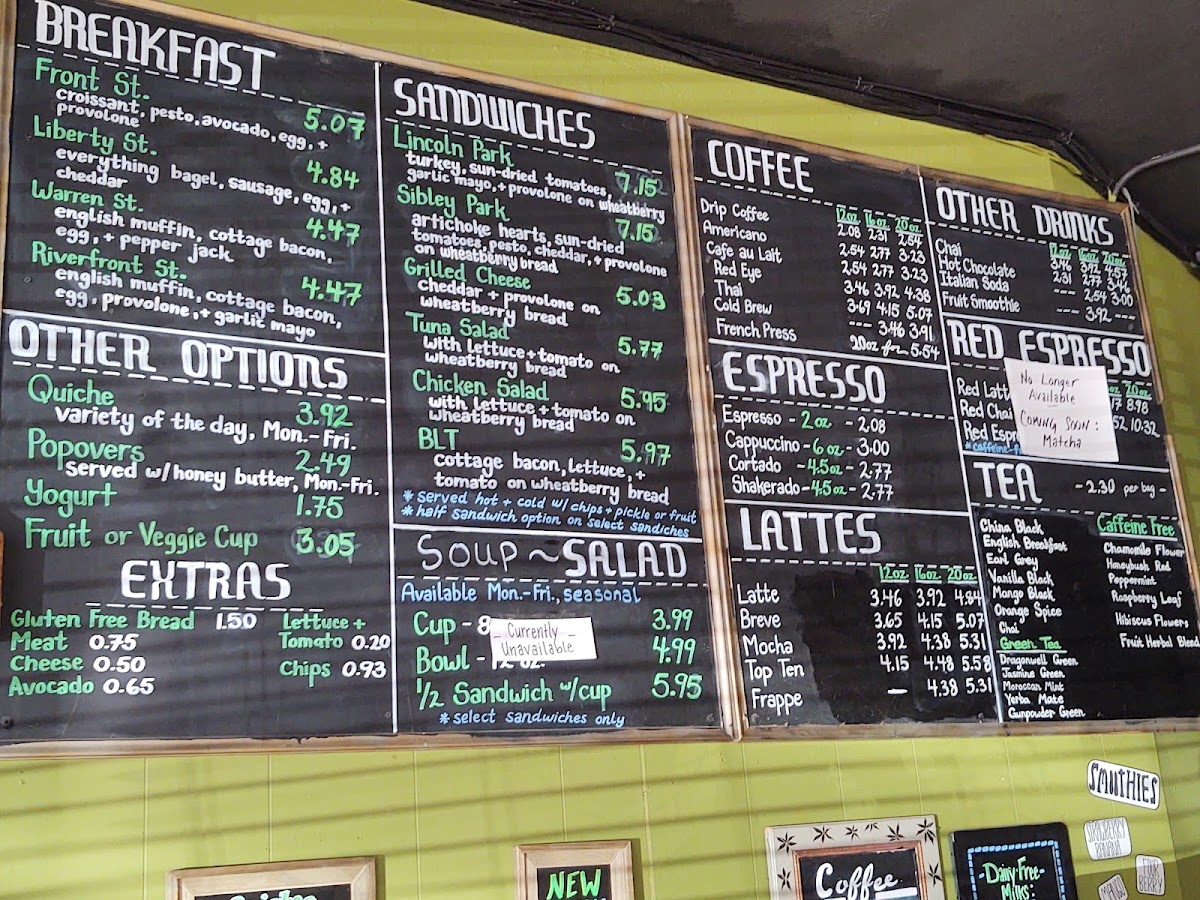 BREAKFAST
Front St.
croissant, pesto, avocado, egg, +
provolone. 5.07
Liberty St.
everything bagel, sausage, egg, +
cheddar 4.84
Warren St.
english muffin, cottage bacon,
egg, + pepper jack 4.47
Riverfront St.
english muffin, cottage bacon,
egg, provolone, + garlic mayo 4.47
OTHER OPTIONS
Quiche 3.92
variety of the day, Mon.-Fri.
Popovers 2.49
served w/honey butter, Mon.-Fri.
Yogurt 1.75
Fruit or Veggie Cup 3.05
EXTRAS
Gluten Free Bread 1.50
Meat 0.75
Cheese 0.50
Avocado 0.65
Lettuce +
Tomato 0.20
Chips 0.93
SANDWICHES
Lincoln Park
turkey, sun-dried tomatoes, 7.15
garlic mayo, + provolone on wheatberry
Sibley Park 7.15
artichoke hearts, sun-dried
tomatoes, pesto, cheddar, + provolone
on wheatberry bread
Grilled Cheese 5.03
cheddar + provolone on
wheatberry bread
Tuna Salad 5.77
with lettuce + tomato on
wheatberry bread
Chicken Salad 5.95
with lettuce + tomato on
wheatberry bread
BLT 5.97
cottage bacon, lettuce, +
tomato on wheatberry bread
* served hot + cold w/ chips + pickle or fruit
* half sandwich option on select sandiches
SOUP ~ SALAD
Available Mon.-Fri., seasonal
Cup - 8 3.99
Bowl - 12 oz. 4.99
- Currently -
Unavailable
1/2 Sandwich w/cup 5.95
* select sandwiches only
COFFEE
12oz 16oz 20oz
Drip Coffee 2.08 2.31 2.54
Americano 2.54 2.77 3.23
Cafe au Lait 2.54 2.77 3.23
Red Eye 3.46 3.92 4.38
Thai 3.69 4.15 5.07
Cold Brew --- 3.46 3.91
French Press 20oz for 5.54
ESPRESSO
Espresso - 2oz - 2.08
Cappuccino - 6oz - 3.00
Cortado - 4.5oz - 2.77
Shakerado - 4.5oz - 2.77
LATTES
12oz 16oz 20oz
Latte 3.46 3.92 4.84
Breve 3.65 4.15 5.07
Mocha 3.92 4.38 5.31
Top Ten 4.15 4.48 5.58
Frappe — 4.38 5.31
OTHER DRINKS
12oz 16oz 20oz
Chai 3.46 3.92 4.57
Hot Chocolate 2.31 2.77 3.46
Italian Soda --- 2.54 3.00
Fruit Smoothie --- 3.92 ---
RED ESPRESSO
20oz
Red Latt 8.78
Red Chai 10.32
Red Espr
*caffeine-f
No Longer
Available
Coming Soon:
Matcha
TEA - 2.30 per bag -
China Black
English Breakfast
Earl Grey
Vanilla Black
Mango Black
Orange Spice
Chai
Green Tea
Dragonwell Green
Jasmine Green
Moroccan Mint
Yerba Mate
Gunpowder Green
Caffeine Free
Chamomile Flower
Honeybush Red
Peppermint
Raspberry Leaf
Hibiscus Flowers
Fruit Herbal Blend
SMOTHIES
STRAWBERRY
BANANA
FOUR
BERRY
MANGO
NEW
Coffee
-Dairy-Free-
Milks: